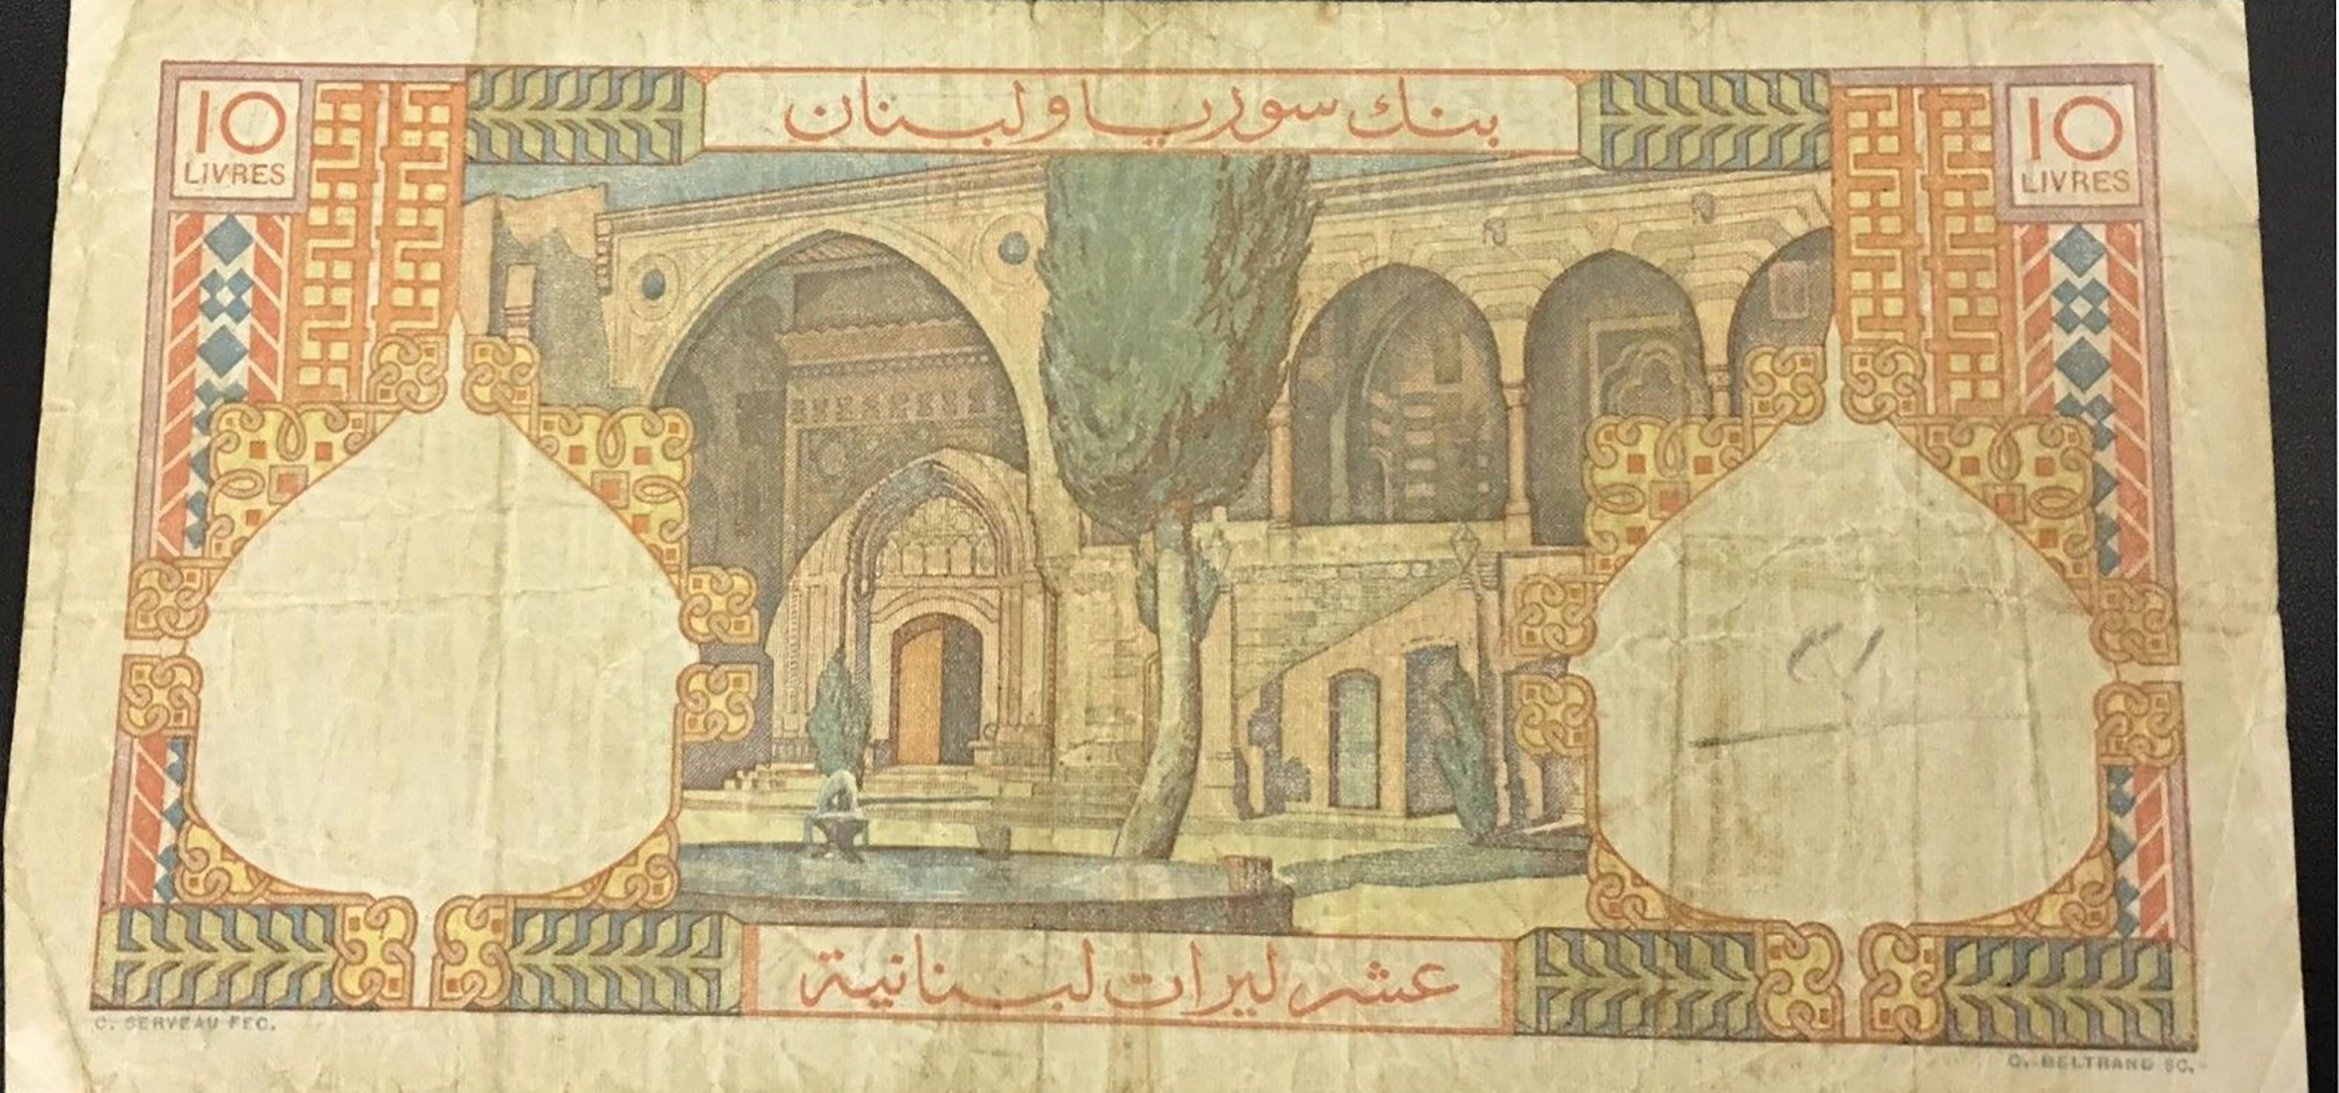 10
LIVRES
بنك سوريا ولبنان
10
LIVRES
عشر ليرات لبنانية
C. SERVEAU FEC.
C. BELTRAND SC.